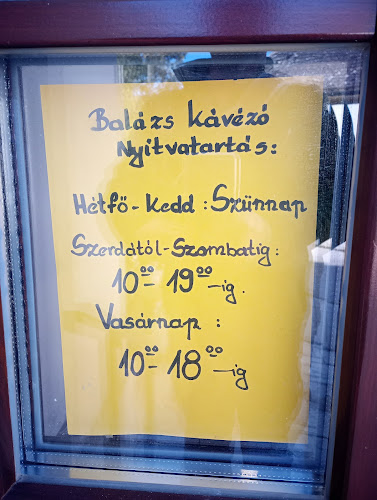 Balázs kávézó
Nyitvatartás:
Hétfő-Kedd : Szünnap
Szerdától-Szombatig:
10⁰⁰-19⁰⁰-ig.
Vasárnap :
10⁰⁰-18⁰⁰-ig